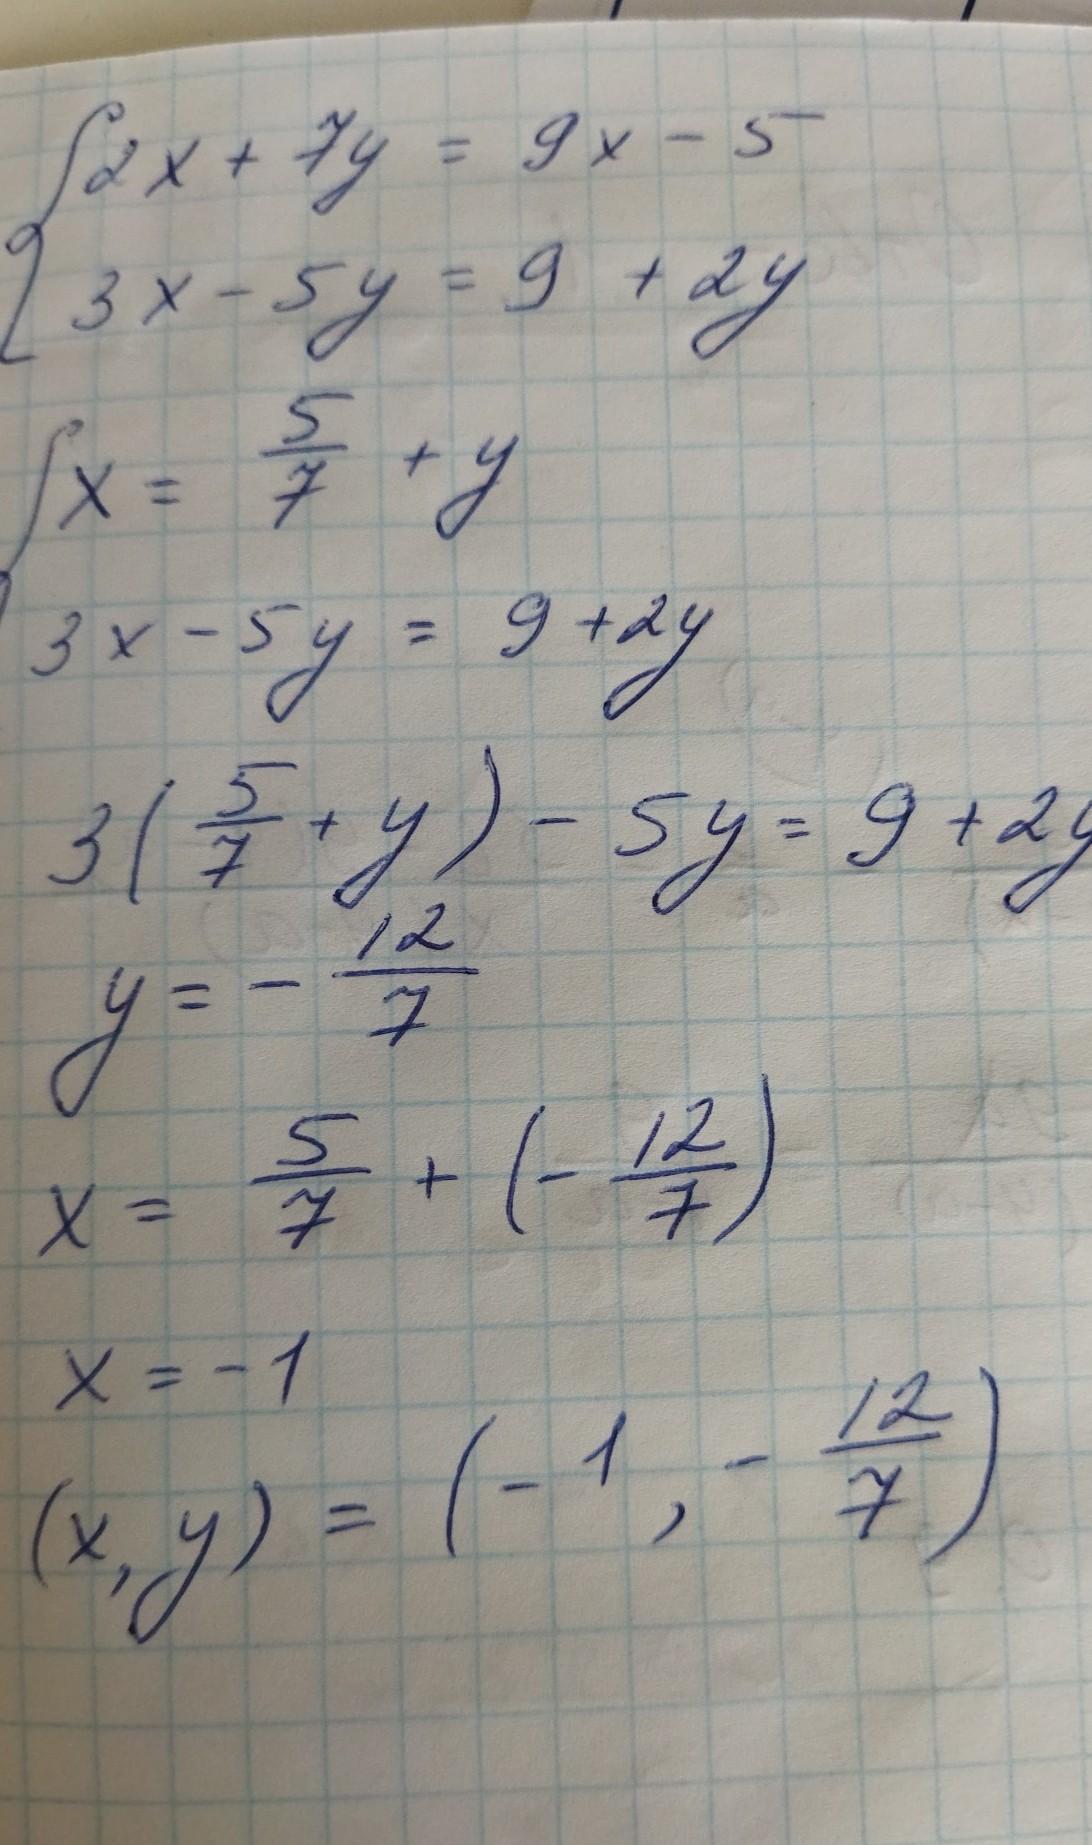 {2x + 7y = 9x - 5
3x - 5y = 9 + 2y
{x = 5/7 + y
3x - 5y = 9 + 2y
3(5/7 + y) - 5y = 9 + 2y
y = - 12/7
x = 5/7 + (- 12/7)
x = -1
(x, y) = (-1, - 12/7)